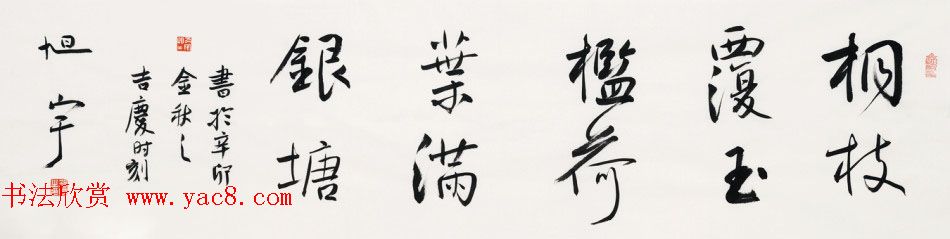 桐枝
覆玉
檻荷
葉滿
銀塘
書於辛卯
金秋之
吉慶时刻
旭宇
书法欣赏 www.yac8.com